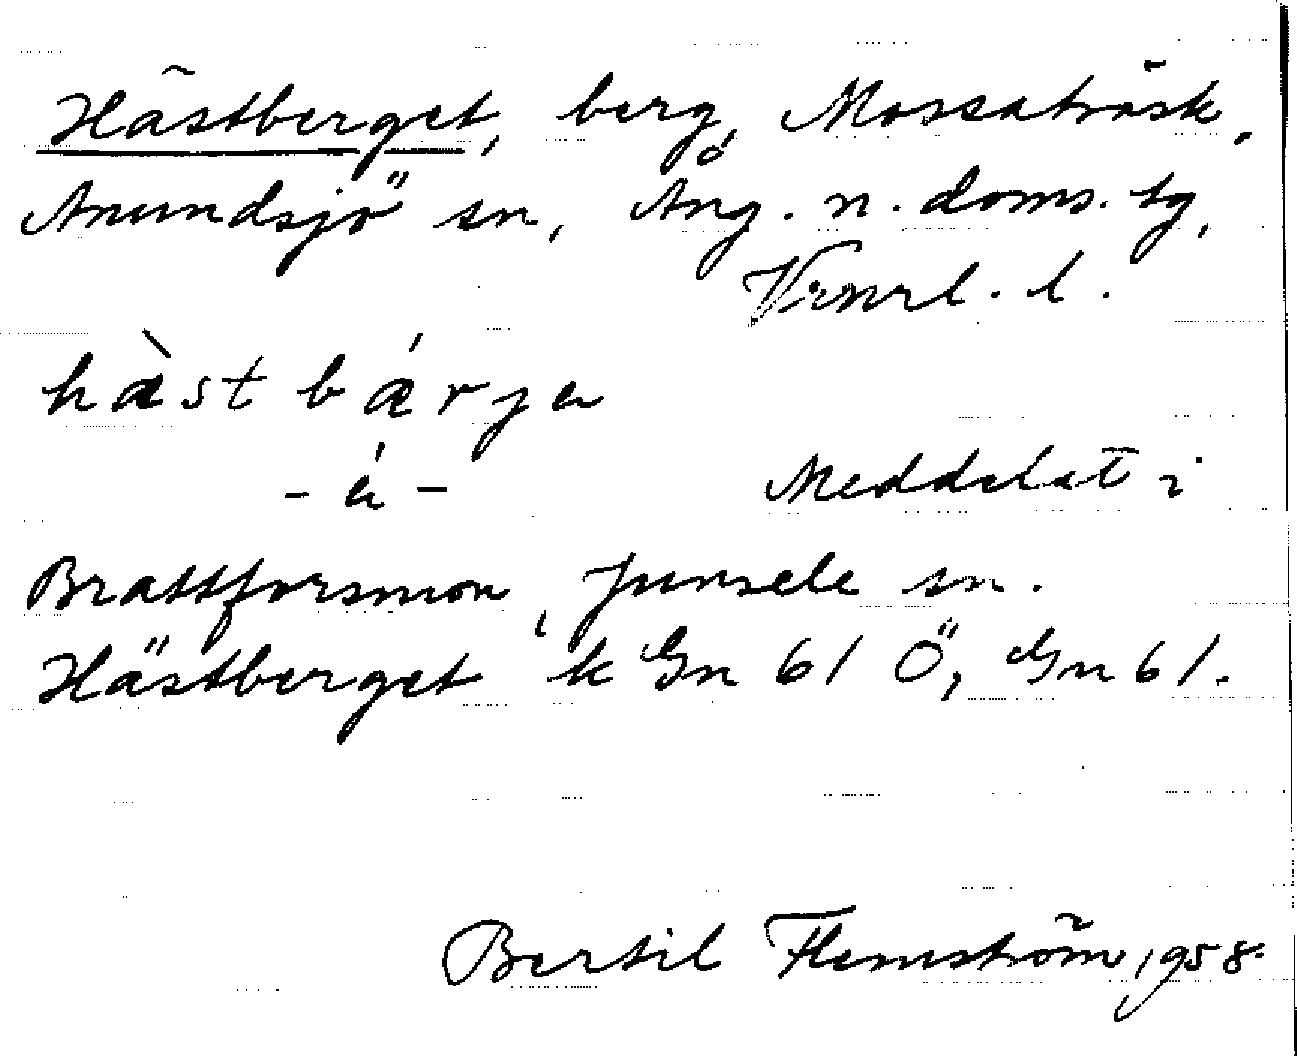 Hästberget, berg, Mossaträsk,
Anundsjö sn, Ång. n. doms. tg,
Vrnrl. l.
hæ̀st bǽrja
- á - Meddelat i
Brattforsmon, Junsele sn.
Hästberget k Gn 61 Ö, Gn 61.
Bertil Flemström, 1958.